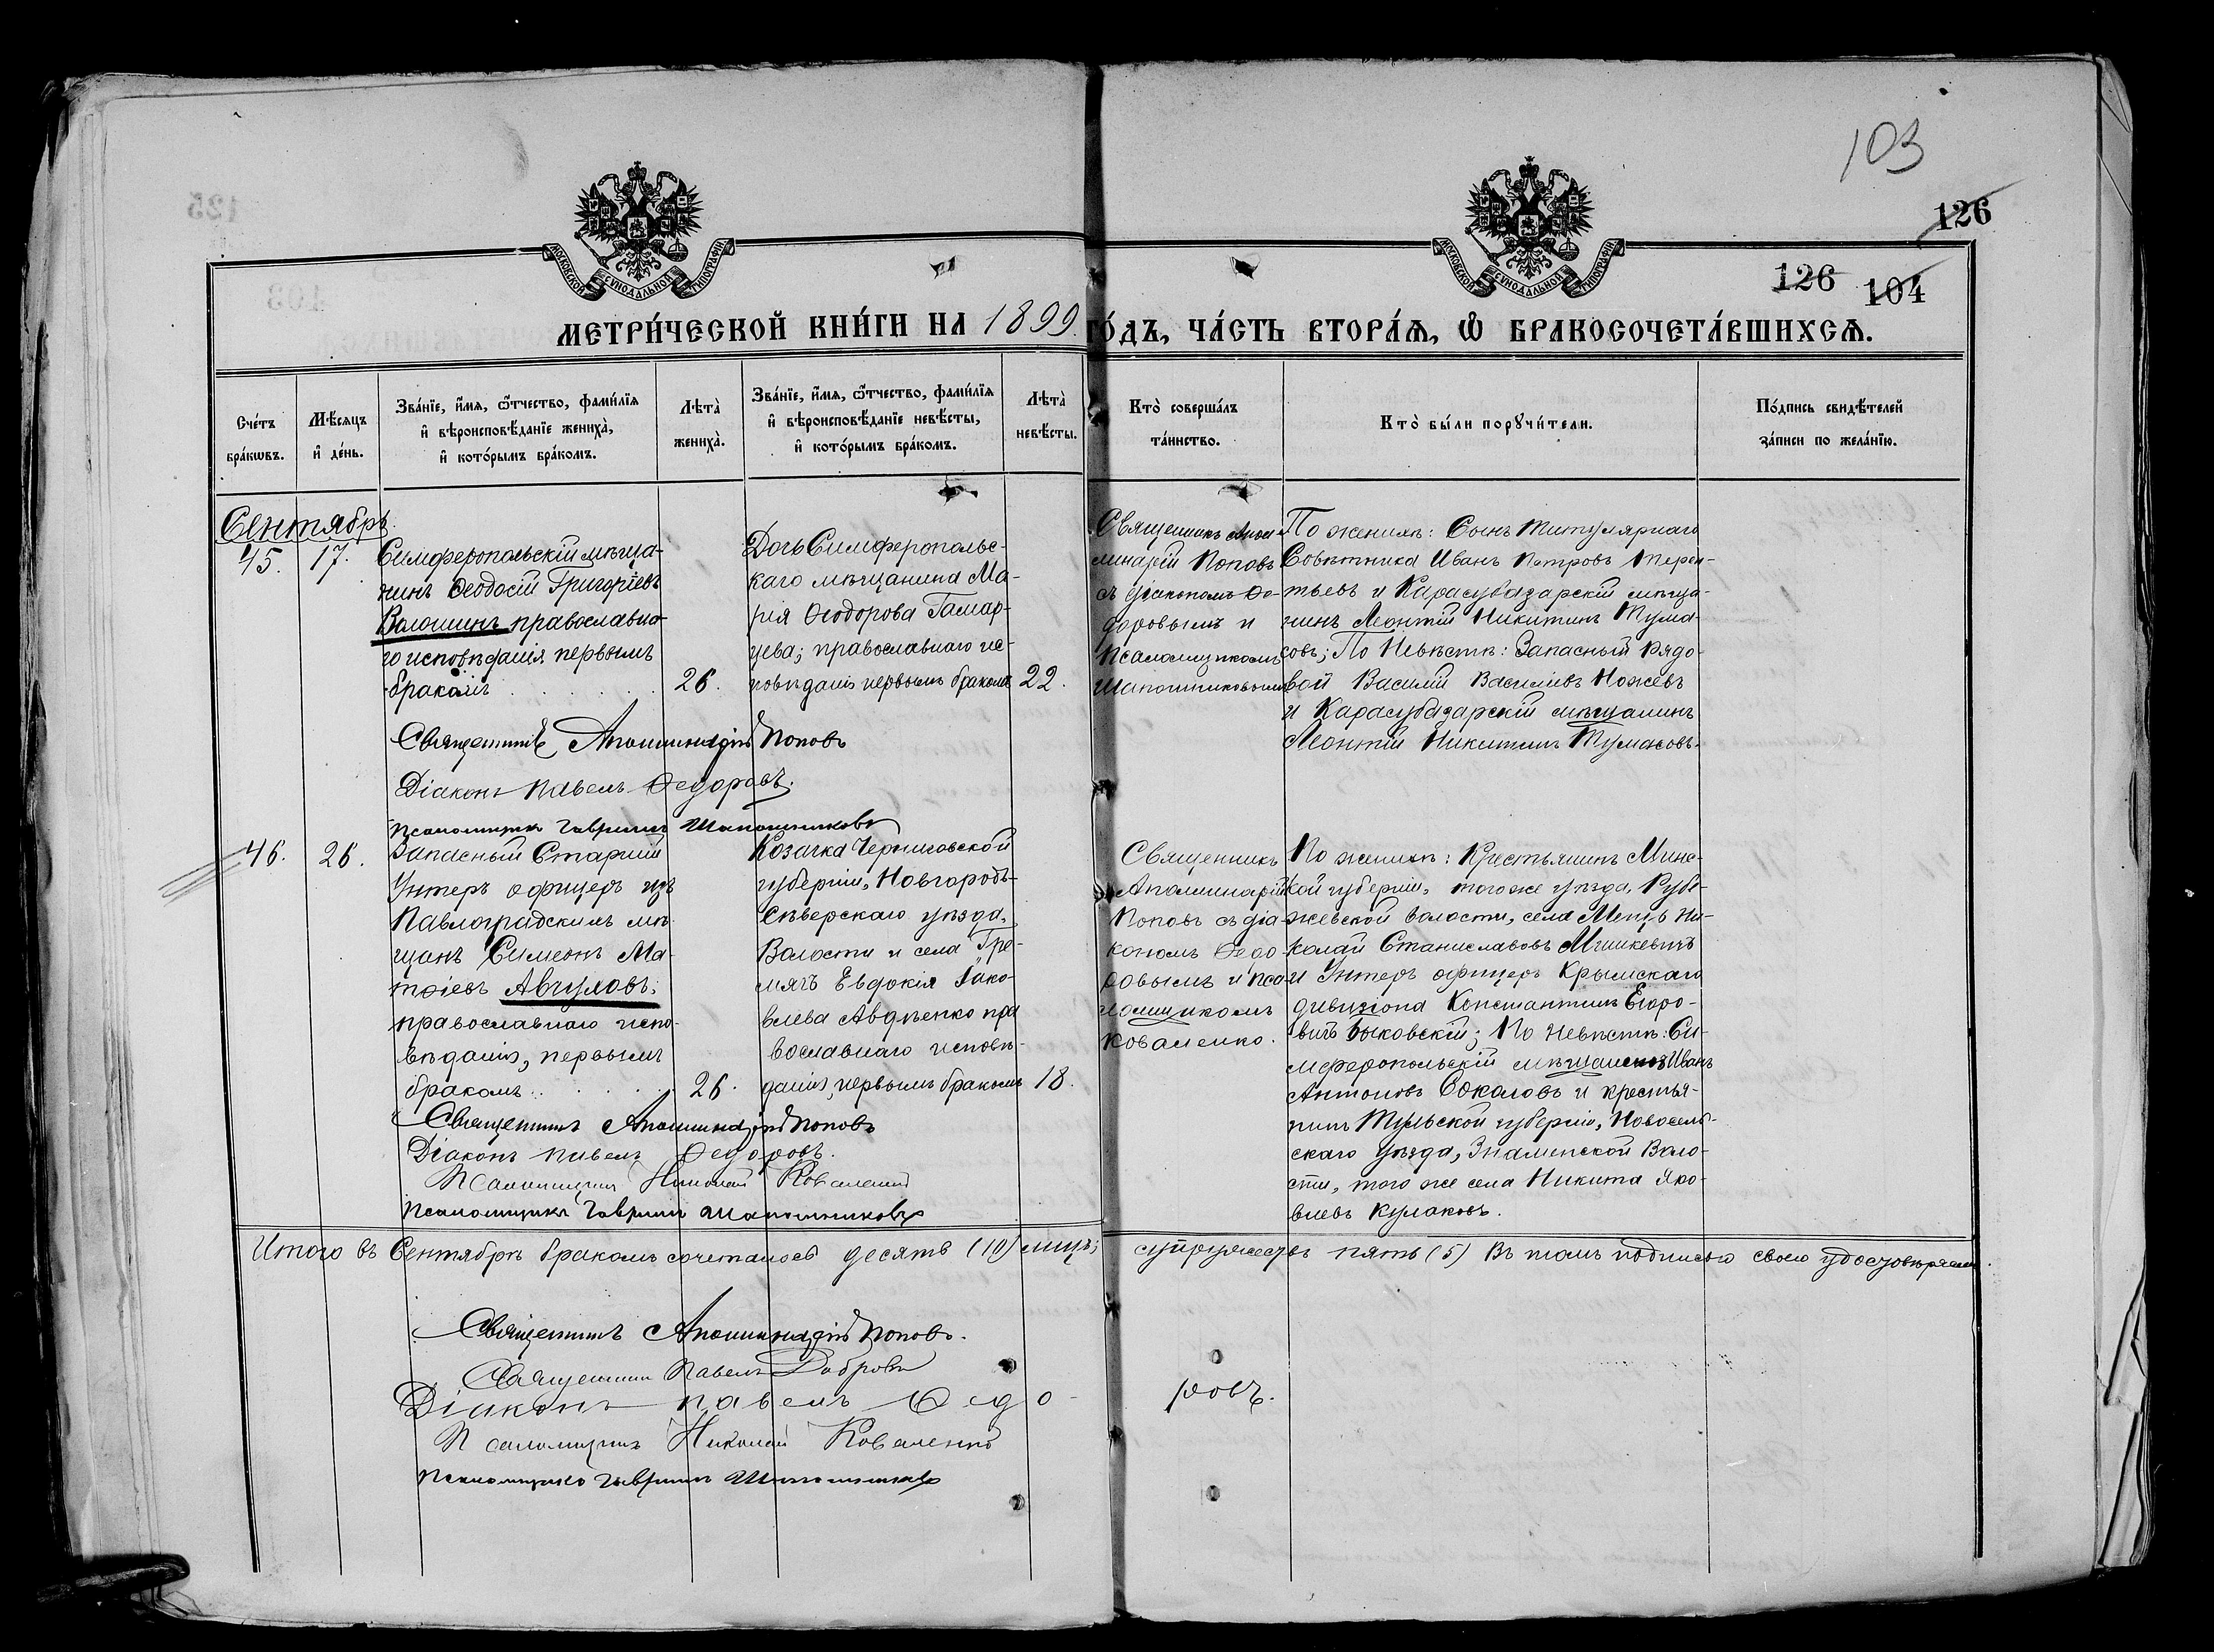 103
126
126 104
МОСКОВСКОЙ СѴНОДАЛЬНОЙ ТИПОГРАФІИ
МОСКОВСКОЙ СѴНОДАЛЬНОЙ ТИПОГРАФІИ
МЕТРИ́ЧЕСКОЙ КНИ́ГИ НА 1899 ГО́ДЪ, ЧА́СТЬ ВТОРА́Ѧ, Ѡ҆ БРАКОСОЧЕТА́ВШИХСѦ.
Сче́тъ бра́кѡвъ.
Мѣ́сяцъ и҆ де́нь.
Зва́нїе, и҆́мѧ, ѻ҆́тчество, фами́лїѧ
и҆ вѣроисповѣ́данїе жениха̀,
и҆ кото́рымъ бра́комъ.
Лѣта̀ жениха̀.
Зва́нїе, и҆́мѧ, ѻ҆́тчество, фами́лїѧ
и҆ вѣроисповѣ́данїе невѣ́сты,
и҆ кото́рымъ бра́комъ.
Лѣта̀ невѣ́сты.
Кто̀ соверша́лъ
та́инство.
Кто̀ бы́ли порꙋчи́тели.
По́дпись свидѣ́телей
за́писи по жела́нїю.
Сентябрь.
45. 17.
Симферопольскій мѣща-
нинъ Ѳеодосій Григоріевъ
Волошинъ православна-
го исповѣданія первымъ
бракомъ 26.
Дочь Симферопольс-
каго мѣщанина Ма-
рія Ѳеодорова Гамар-
цева; православнаго ис-
повѣданія первымъ бракомъ 22.
Священникъ Апол-
линарій Поповъ
съ діакономъ Ѳе-
доровымъ и
Псаломщикомъ
Шапошниковымъ
По женихѣ: Сынъ Титулярнаго
Совѣтника Иванъ Петровъ Терен-
тьевъ и Карасубазарскій мѣща-
нинъ Леонтій Никитинъ Тума-
совъ; По Невѣстѣ: Запасный Рядо-
вой Василій Васильевъ Ножевъ
и Карасубазарскій мѣщанинъ
Леонтій Никитинъ Тумасовъ.
Священникъ Аполлинарій Поповъ
Діаконъ Павелъ Ѳедоровъ.
Псаломщикъ Гавріилъ Шапошниковъ
46. 26.
Запасный Старшій
Унтеръ офицеръ изъ
Павлоградскихъ мѣ-
щанъ Симеонъ Ма-
тѳіевъ Авчуловъ;
православнаго испо-
вѣданія, первымъ
бракомъ 26.
Козачка Черниговской
губерніи, Новгородъ-
Сѣверскаго уѣзда,
Волости и села Гре-
мячъ Евдокія Іако-
влева Авдѣенко пра
вославнаго исповѣ-
данія, первымъ бракомъ 18.
Священникъ
Аполлинарій
Поповъ съ діа-
кономъ Ѳедо
ровымъ и Пса-
ломщикомъ
Коваленко.
По женихѣ: Крестьянинъ Минс-
кой губерніи, того же уѣзда, Рубе-
жевской волости, села Ни-
колай Станиславовъ Мишкевичъ
и Унтеръ офицеръ Крымскаго
дивизіона Константинъ Егоро-
вичъ Быковскій; По Невѣстѣ: Си-
мферопольскій мѣщанинъ Иванъ
Антоновъ Соколовъ и крестья-
нинъ Тульской губерніи, Новосель-
скаго уѣзда, Знаменской Воло-
сти, того же села Никита Яко-
влевъ Кулаковъ.
Священникъ Аполлинарій Поповъ
Діаконъ Павелъ Ѳедоровъ.
Псаломщикъ Николай Коваленко
Псаломщикъ Гавріилъ Шапошниковъ
Итого въ Сентябрѣ бракомъ сочеталось десять (10) лицъ; супружествъ пять (5) Въ томъ подписью своею удостовѣряемъ.
Священникъ Аполлинарій Поповъ.
Священникъ Павелъ Добровъ
Діаконъ Павелъ Ѳедо- ровъ.
Псаломщикъ Николай Коваленко
Псаломщикъ Гавріилъ Шапошниковъ